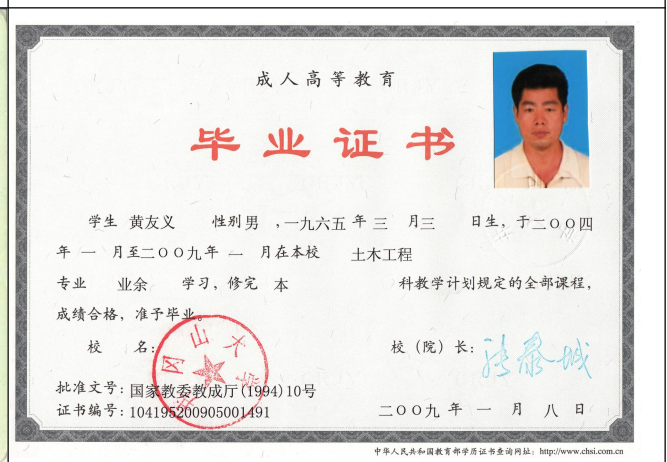 成人高等教育
毕业证书
学生 黄友义 性别 男 ,一九六五 年 三 月 三 日生, 于二〇〇四
年 一 月至二〇〇九 年 一 月在本校 土木工程
专业 业余 学习, 修完 本 科教学计划规定的全部课程,
成绩合格, 准予毕业。
校 名: 校 (院) 长:
井冈山大学
批准文号: 国家教委教成厅(1994)10号
证书编号: 104195200905001491 二〇〇九 年 一 月 八 日
中华人民共和国教育部学历证书查询网址: http://www.chsi.com.cn